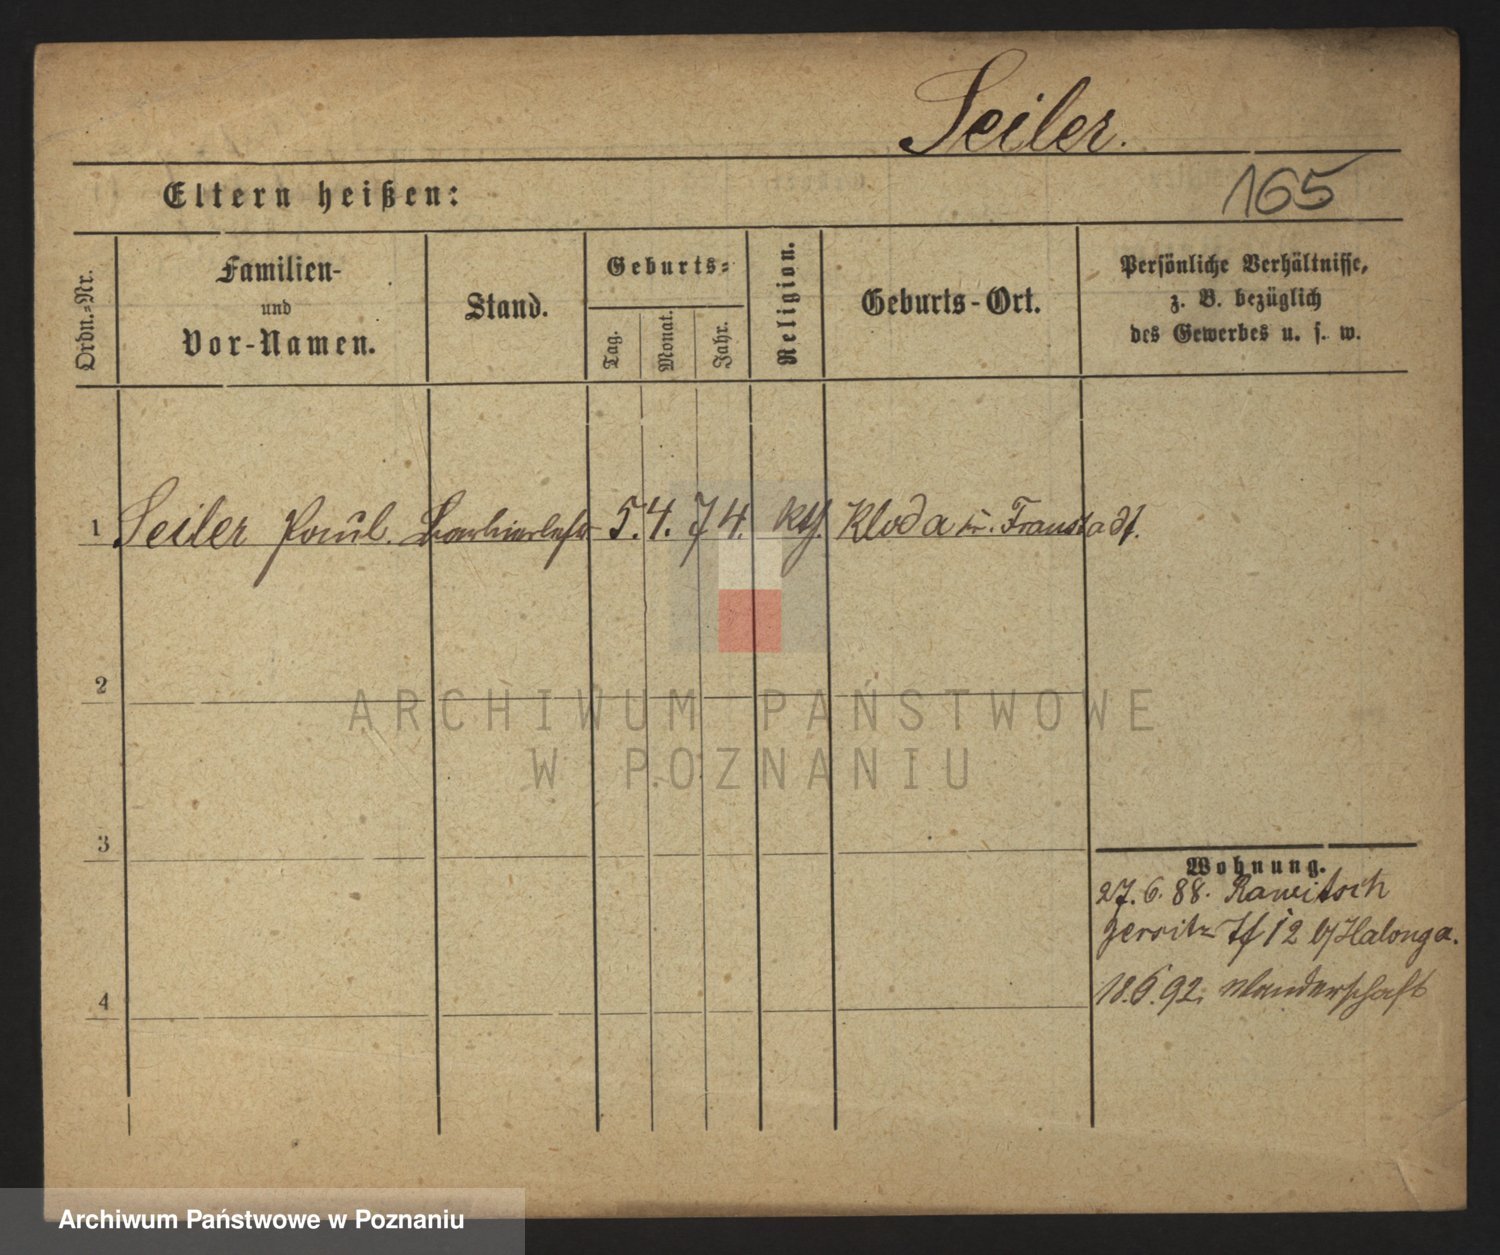 Seiler.
Eltern heißen:
165
Ordn.-Nr.
Familien-
und
Vor-Namen.
Stand.
Geburts-
Tag.
Monat.
Jahr.
Religion.
Geburts-Ort.
Persönliche Verhältnisse,
z. B. bezüglich
des Gewerbes u. s. w.
1 Seiler Paul. 5. 4. 74. kth. Kloda Kr. Fraustadt.
2
ARCHIWUM PAŃSTWOWE
W POZNANIU
3
Wohnung.
27. 6. 88. Rawitsch
12 b/Halonga.
4
18.6.92. Wanderschaft
Archiwum Państwowe w Poznaniu